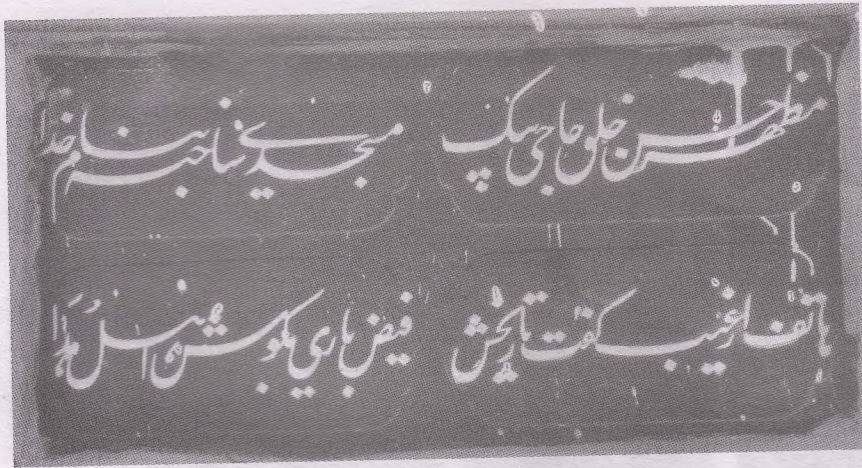 مظهر حسن خلق حاجی بیک مسجدی ساخته بنام خدا
هاتف از غیب کفت تاریخش فیض باری بکوش اهل هُدا